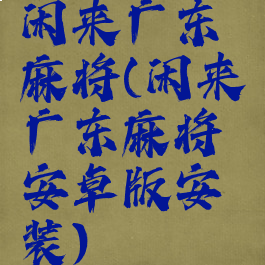 闲来广东
麻将(闲来
广东麻将
安卓版安
装)